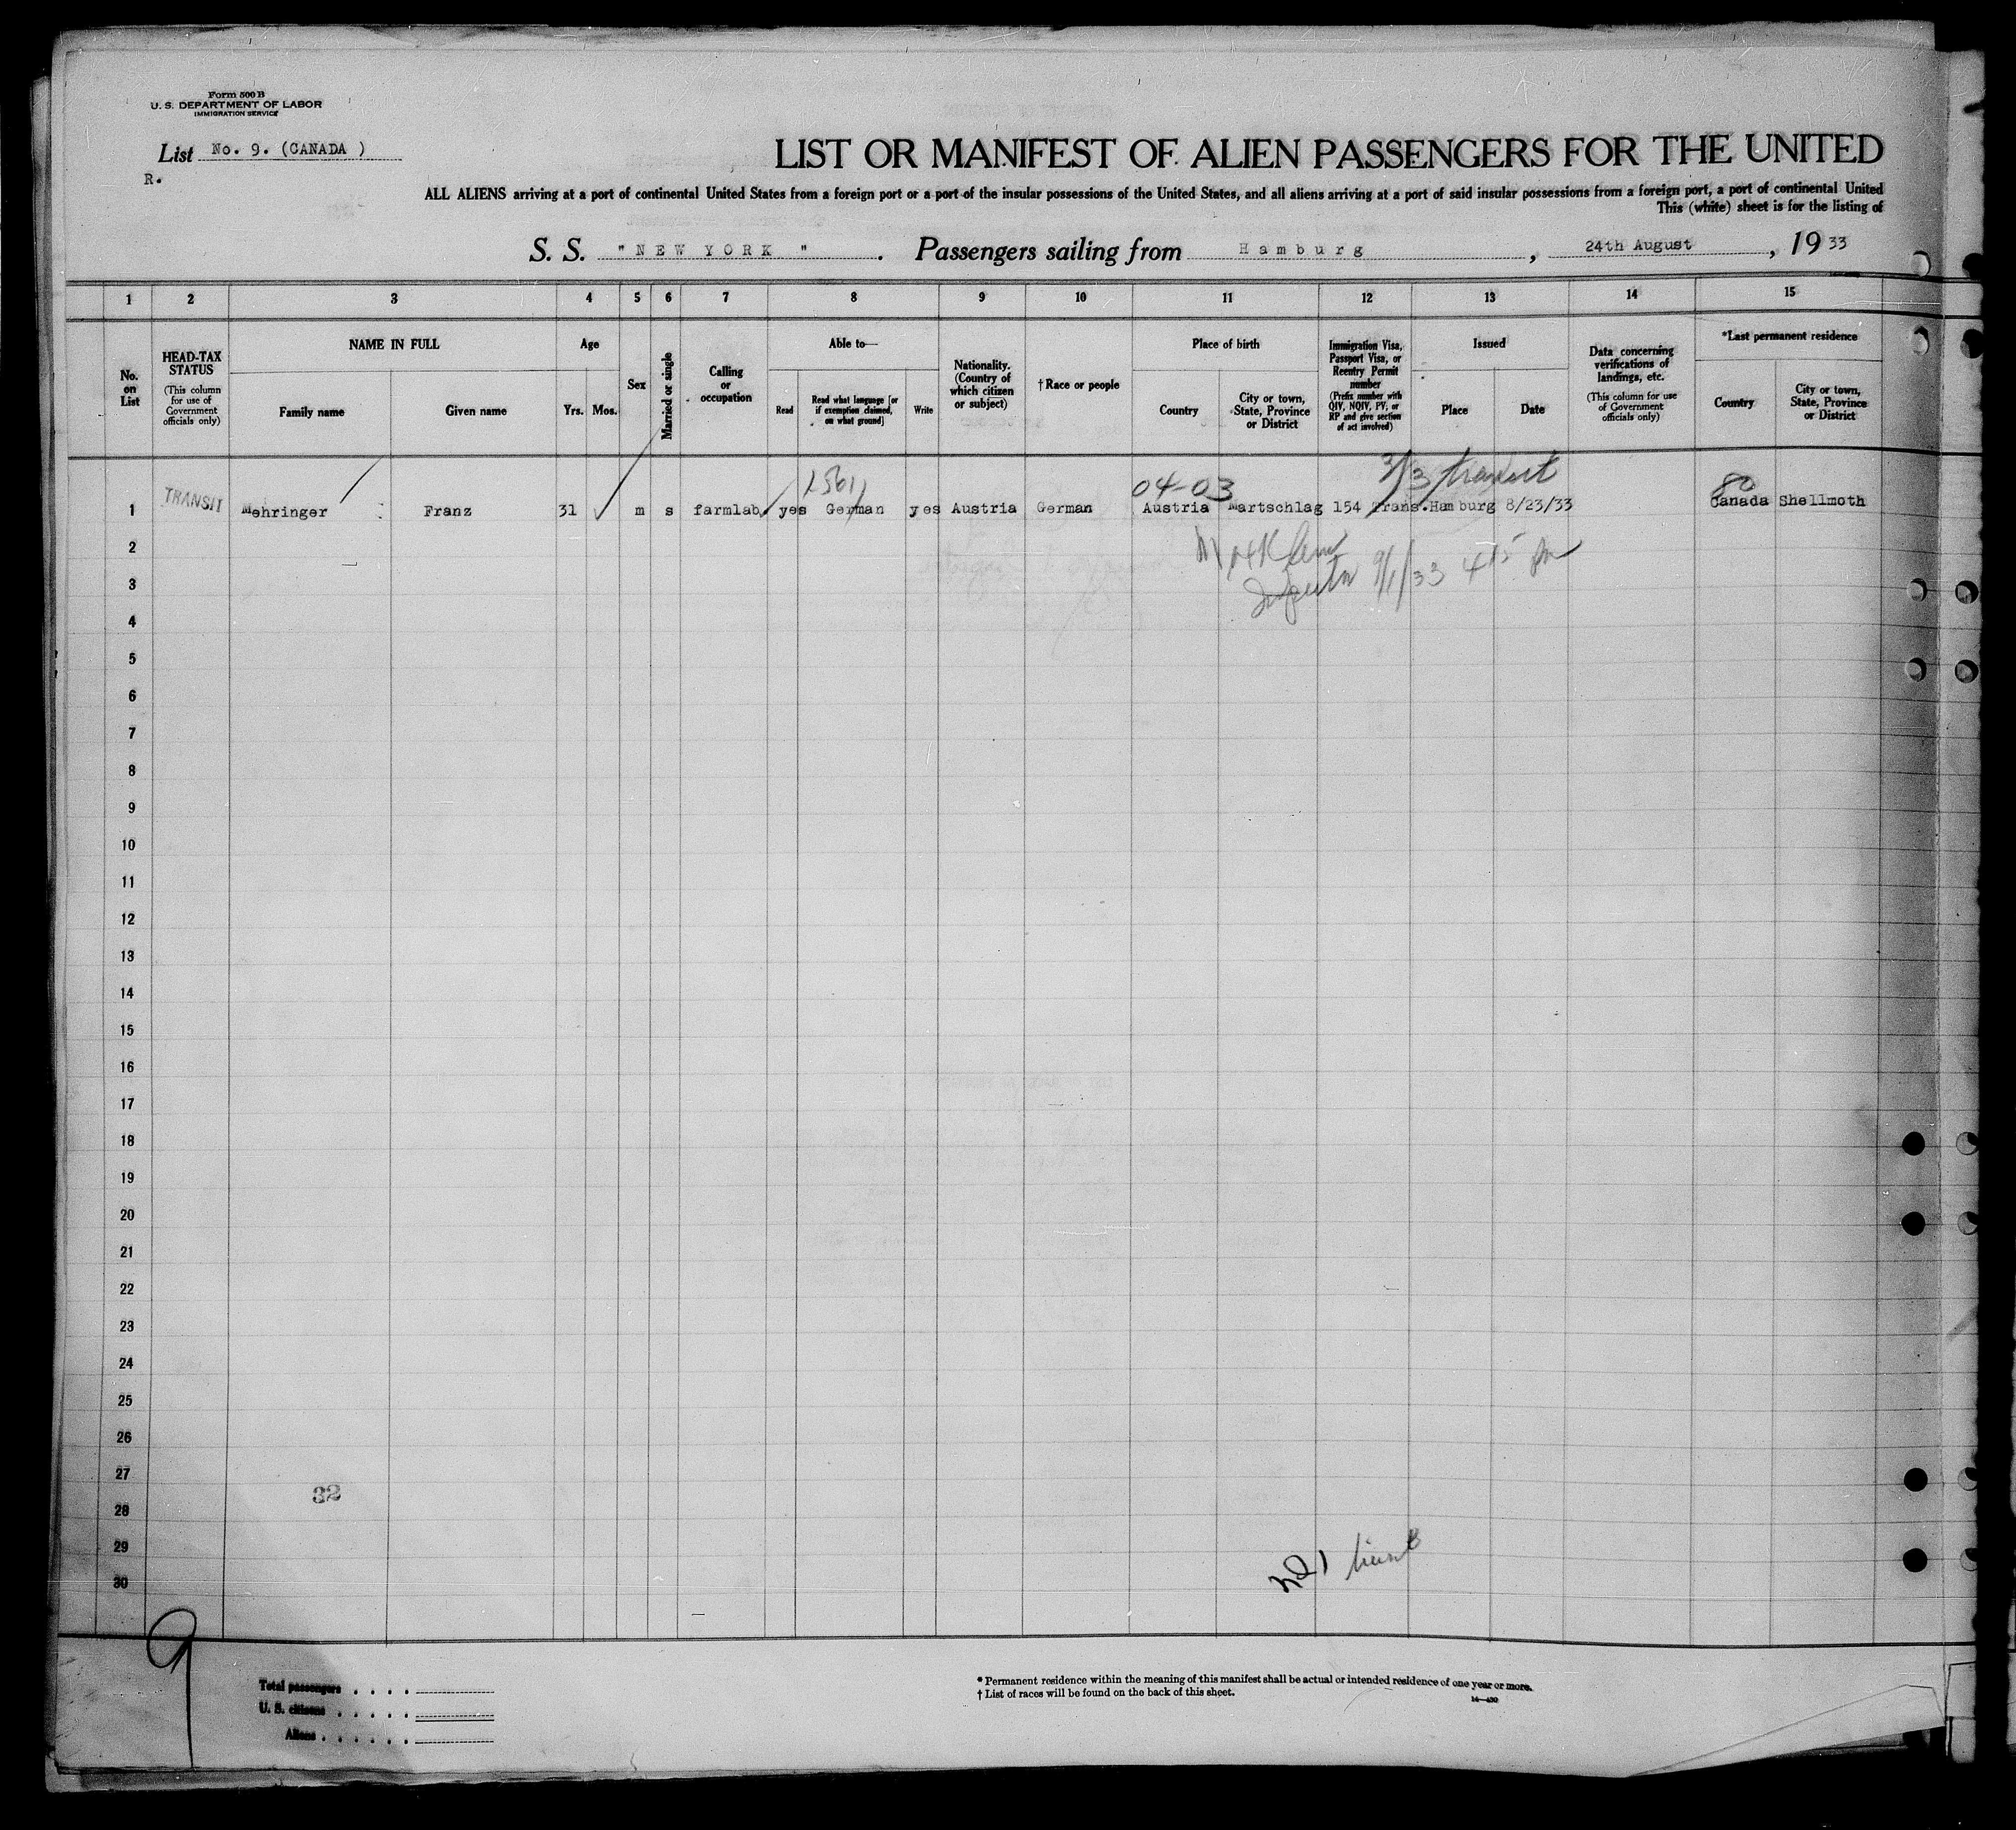 Form 500 B
U. S. DEPARTMENT OF LABOR
IMMIGRATION SERVICE
List No. 9. (CANADA )
R.
LIST OR MANIFEST OF ALIEN PASSENGERS FOR THE UNITED
ALL ALIENS arriving at a port of continental United States from a foreign port or a port of the insular possessions of the United States, and all aliens arriving at a port of said insular possessions from a foreign port, a port of continental United
This (white) sheet is for the listing of
S. S. "NEW YORK". Passengers sailing from Hamburg, 24th August, 1933
1 2 3 4 5 6 7 8 9 10 11 12 13 14 15
No. on List
HEAD-TAX STATUS
(This column for use of Government officials only)
NAME IN FULL
Family name
Given name
Age
Yrs. Mos.
Sex
Married or single
Calling or occupation
Able to—
Read
Read what language [or if exemption claimed, on what ground]
Write
Nationality. (Country of which citizen or subject)
†Race or people
Place of birth
Country
City or town, State, Province or District
Immigration Visa, Passport Visa, or Reentry Permit number
(Prefix number with QIV, NQIV, PV, or RP and give section of act involved)
Issued
Place
Date
Data concerning verifications of landings, etc.
(This column for use of Government officials only)
*Last permanent residence
Country
City or town, State, Province or District
04-03 3/3 transit 80
1 TRANSIT Mehringer Franz 31 m s farmlab. yes German yes Austria German Austria Martschlag 154 Trans. Hamburg 8/23/33 Canada Shellmoth
2
9/1/33 415 pm
3
4
5
6
7
8
9
10
11
12
13
14
15
16
17
18
19
20
21
22
23
24
25
26
27
32
28
29
30
9
Total passengers . . . .
U. S. citizens . . . . .
Aliens . . . . . .
* Permanent residence within the meaning of this manifest shall be actual or intended residence of one year or more.
† List of races will be found on the back of this sheet.
14—430